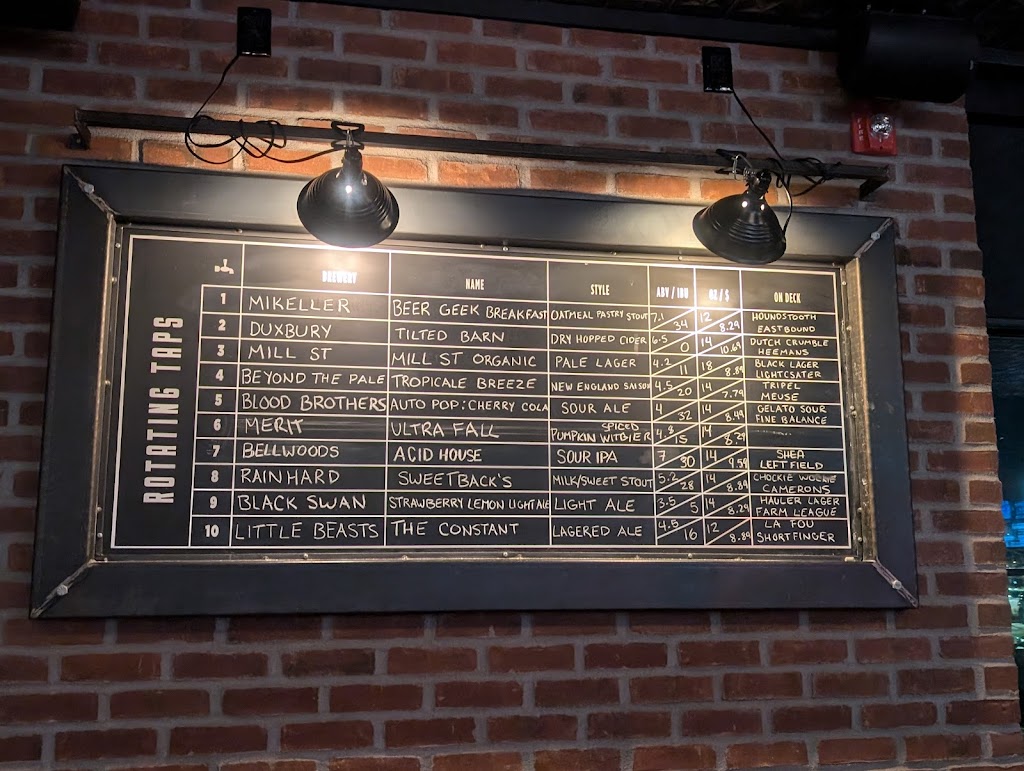 ROTATING TAPS
BREWERY NAME STYLE ABV / IBU OZ / $ ON DECK
1 MIKELLER BEER GEEK BREAKFAST OATMEAL PASTRY STOUT 7.1 34 12 8.29 HOUNDSTOOTH EASTBOUND
2 DUXBURY TILTED BARN DRY HOPPED CIDER 6.5 0 14 10.69 DUTCH CRUMBLE HEEMANS
3 MILL ST MILL ST ORGANIC PALE LAGER 4.2 11 18 8.89 BLACK LAGER LIGHTCSATER
4 BEYOND THE PALE TROPICALE BREEZE NEW ENGLAND SAISON 4.5 20 14 7.79 TRIPEL MEUSE
5 BLOOD BROTHERS AUTO POP: CHERRY COLA SOUR ALE 4 32 14 8.49 GELATO SOUR FINE BALANCE
6 MERIT ULTRA FALL SPICED PUMPKIN WITBIER 4.8 15 14 8.29
7 BELLWOODS ACID HOUSE SOUR IPA 7 30 14 9.59 SHEA LEFT FIELD
8 RAINHARD SWEETBACK'S MILK/SWEET STOUT 5.2 28 14 8.89 CHOCKIE WOOKIE CAMERONS
9 BLACK SWAN STRAWBERRY LEMON LIGHT ALE LIGHT ALE 3.5 5 14 8.29 HAULER LAGER FARM LEAGUE
10 LITTLE BEASTS THE CONSTANT LAGERED ALE 4.5 16 12 8.89 LA FOU SHORTFINGER
FIRE